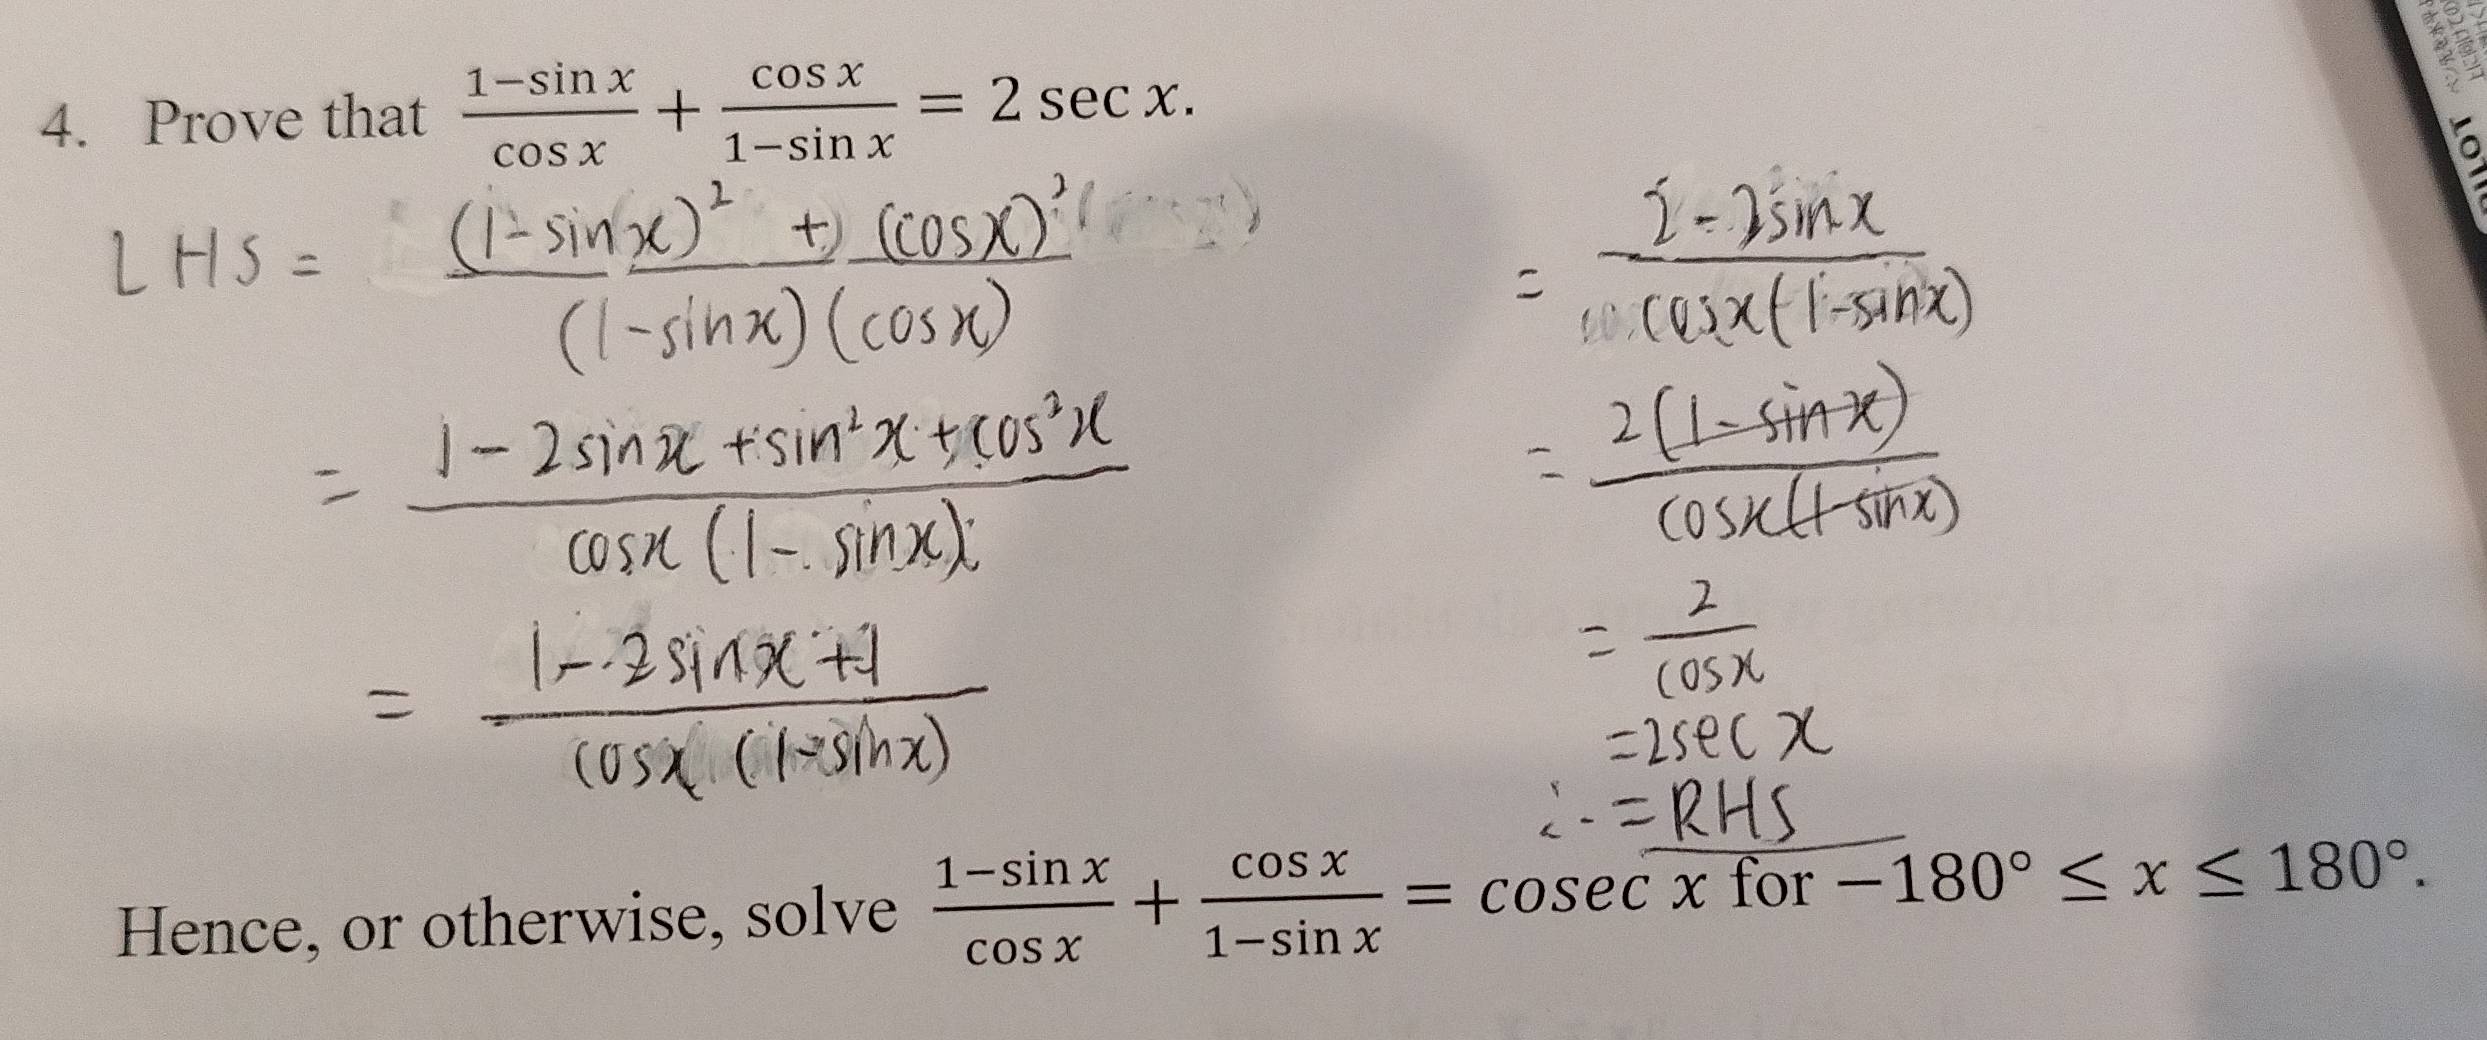 4. Prove that (1−sin x)/(cos x) + (cos x)/(1−sin x) = 2 sec x.
LHS = ((1-sinx)² + (cosx)²)/((1-sinx)(cosx))
= (1-2sinx+sin²x+cos²x)/(cosx(1-sinx))
= (1-2sinx+1)/(cosx(1-sinx))
= (2-2sinx)/(cosx(1-sinx))
= (2(1-sinx))/(cosx(1-sinx))
= 2/(cosx)
=2secx
∴ =RHS
Hence, or otherwise, solve (1−sin x)/(cos x) + (cos x)/(1−sin x) = cosec x for −180° ≤ x ≤ 180°.